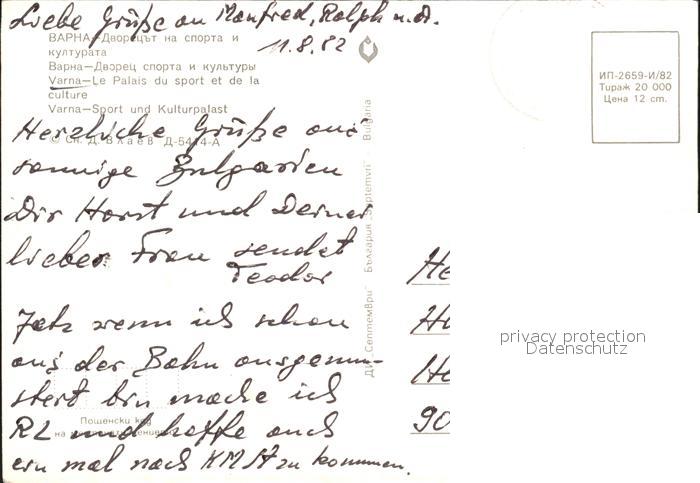 Liebe Grüße an Manfred, Ralph u. A.
11.8.82
ВАРНА—Дворецът на спорта и
културата
Варна—Дворец спорта и культуры
Varna—Le Palais du sport et de la
culture
Varna—Sport und Kulturpalast
© Сн. Д. Влаев Д-5414-А
ИП-2659-И/82
Тираж 20 000
Цена 12 cm.
ДИ „Септември" България „Septemvri" Bulgaria
Herzliche Grüße aus
sonnige Bulgarien
Dir Horst und Deiner
lieber Frau sendet
Teodor
Jetz wenn ich schon
aus der Bahn ausgemu-
stert bin mache ich
RL und hoffe auch
ein mal nach KMSt zu kommen.
Пощенски код
на
He
He
90
privacy protection
Datenschutz